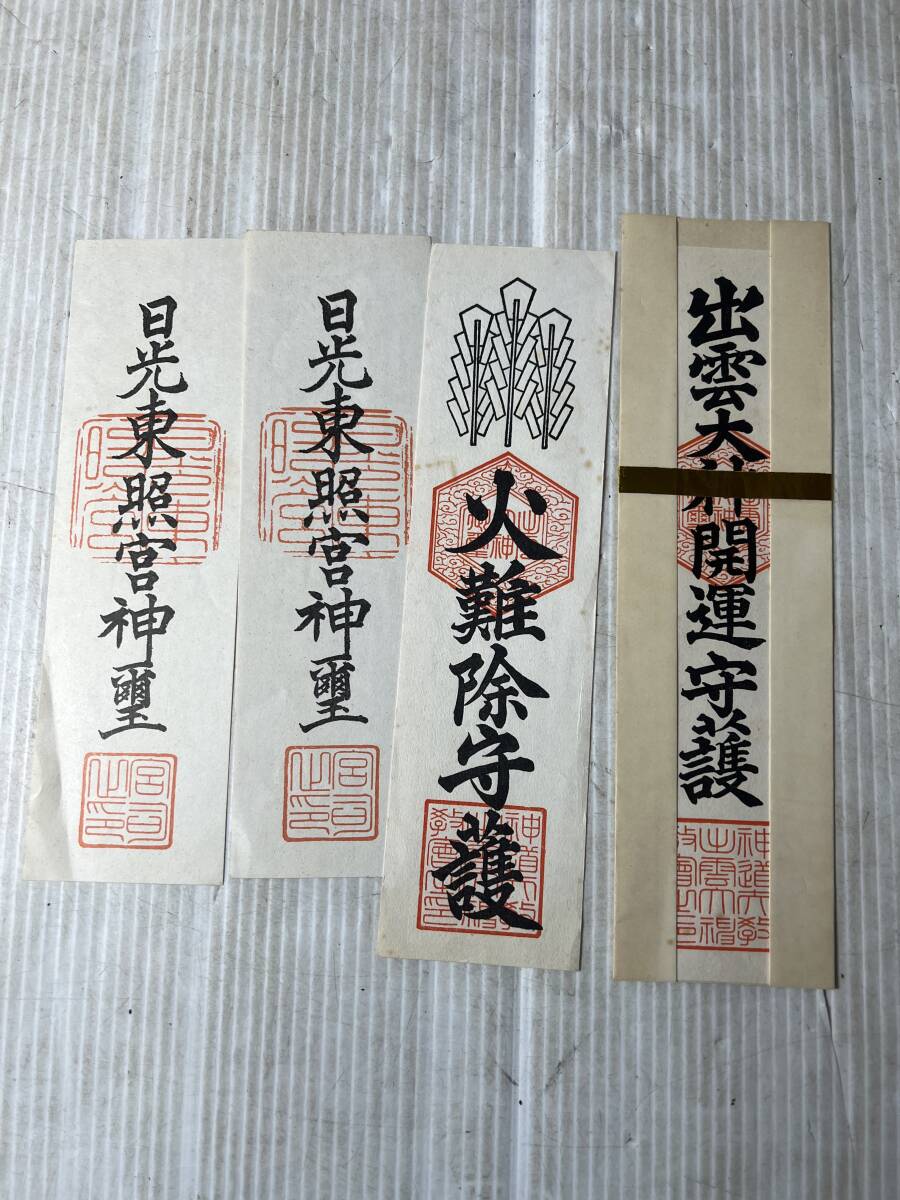 日光東照宮神璽
日光東照宮神璽
火難除守護
出雲大神開運守護